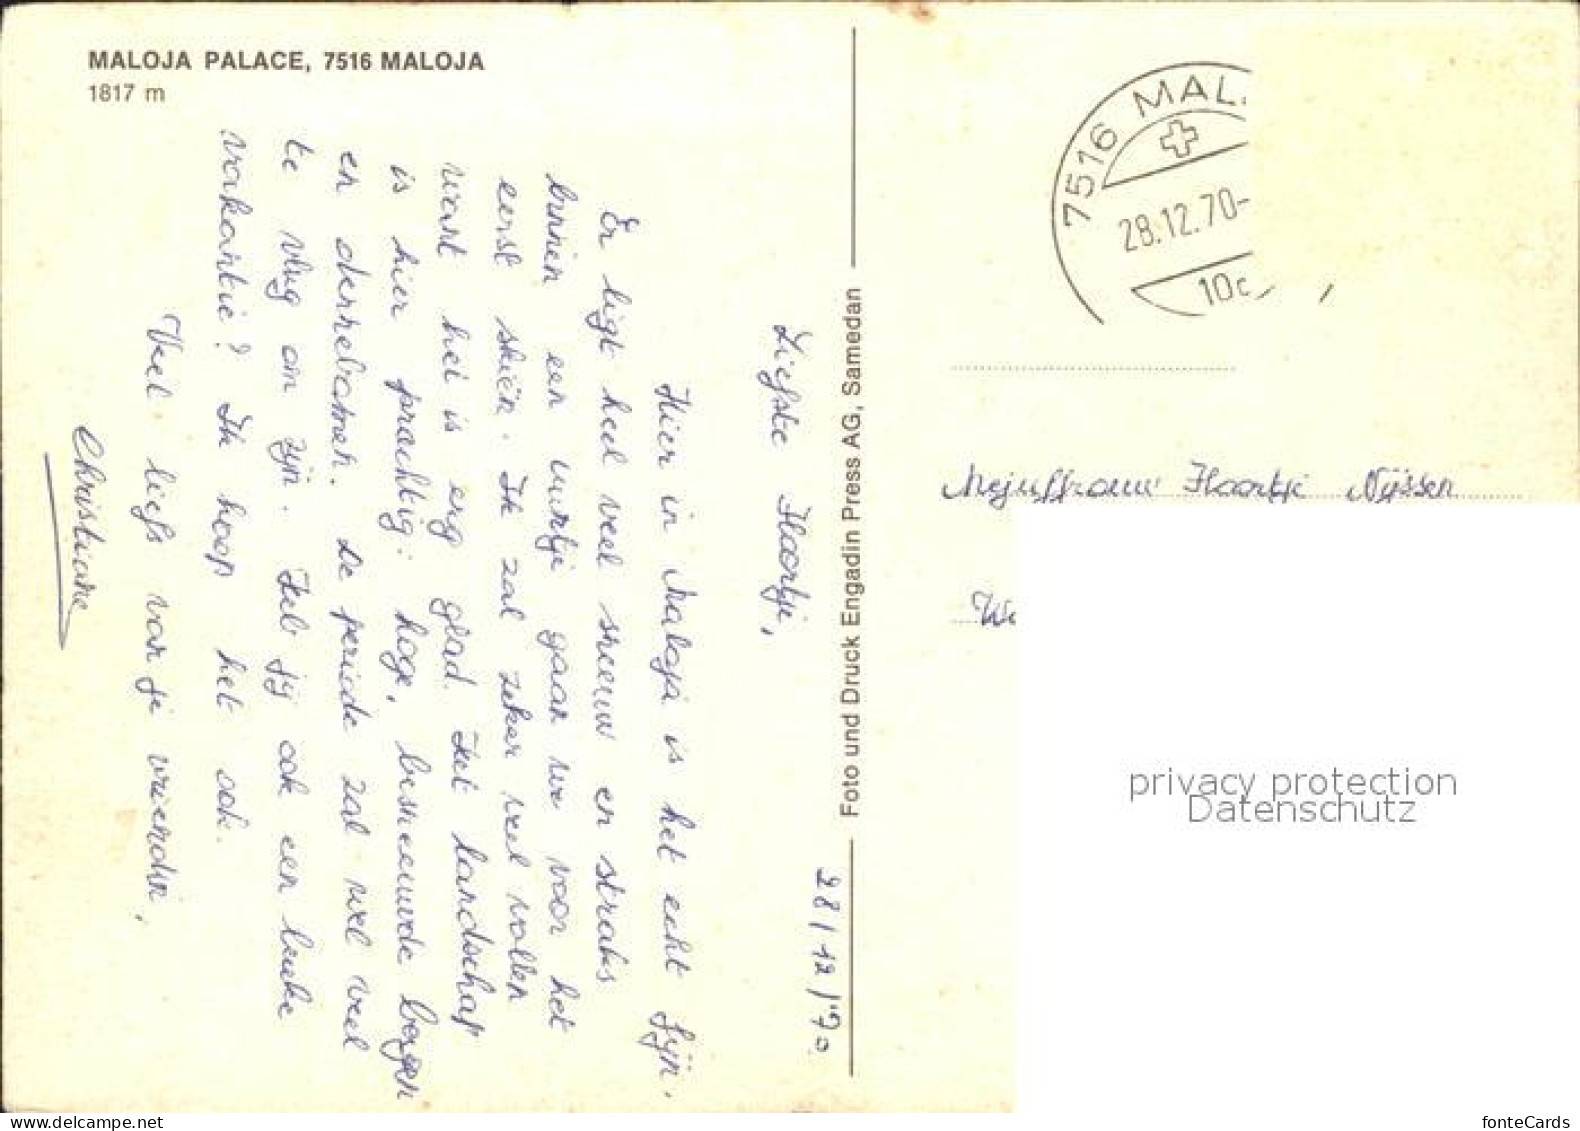 MALOJA PALACE, 7516 MALOJA
1817 m
28/12/'70
Liefste Haartje,
Hier in Maloja is het echt fijn.
Er ligt heel veel sneeuw en straks
binnen een uurtje gaan we voor het
eerst skiën. Ik zal zeker veel vallen
want het is erg glad. Het landschap
is hier prachtig: hoge, besneeuwde bergen
en dennebomen. De periode zal wel veel
te vlug om zijn. Heb jij ook een leuke
vakantie? Ik hoop het ook.
Veel liefs van je vriendin,
Christiane
Foto und Druck Engadin Press AG, Samedan
7516 MAL
28.12.70-
10
Mejuffrouw Haartje Nijssen
privacy protection
Datenschutz
fonteCards
www.delcampe.net